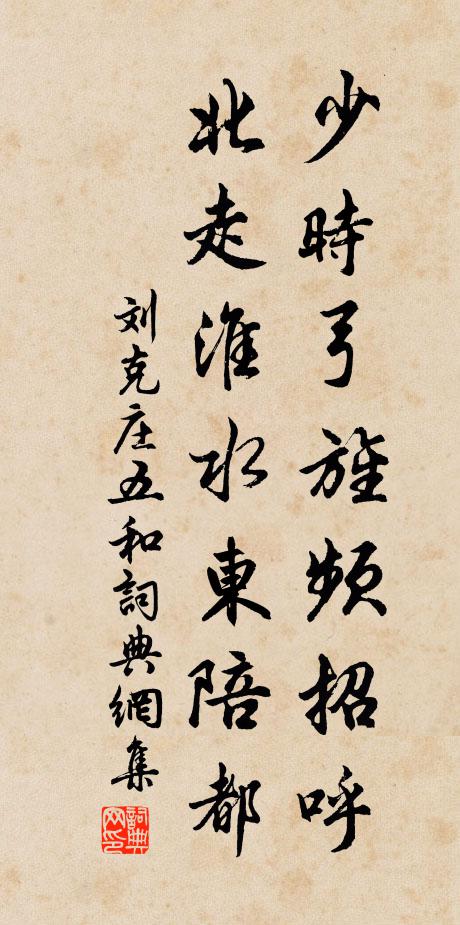 少時弓旌頻招呼
北走淮水東陪都
刘克庄五和詞典網集
詞典网印